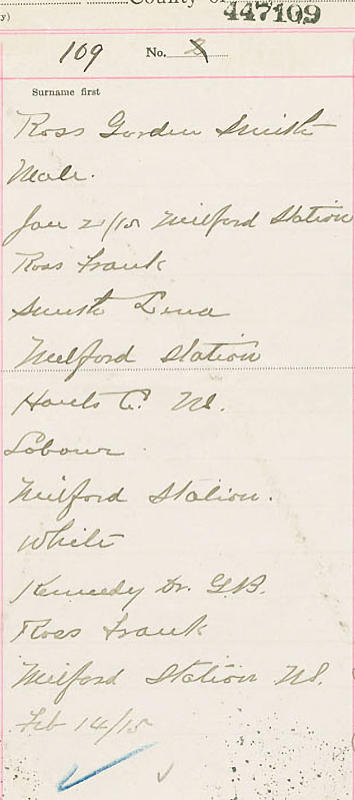 County of
y)
447109
109 No. 8
Surname first
Ross Gordon Smith
Male.
Jan 2/15 Milford Station
Ross Frank
Smith Lena
Milford Station
Hants C. NS.
Labour
Milford Station.
White
Kennedy Dr. G.B.
Ross Frank
Milford Station NS.
Feb 14/15